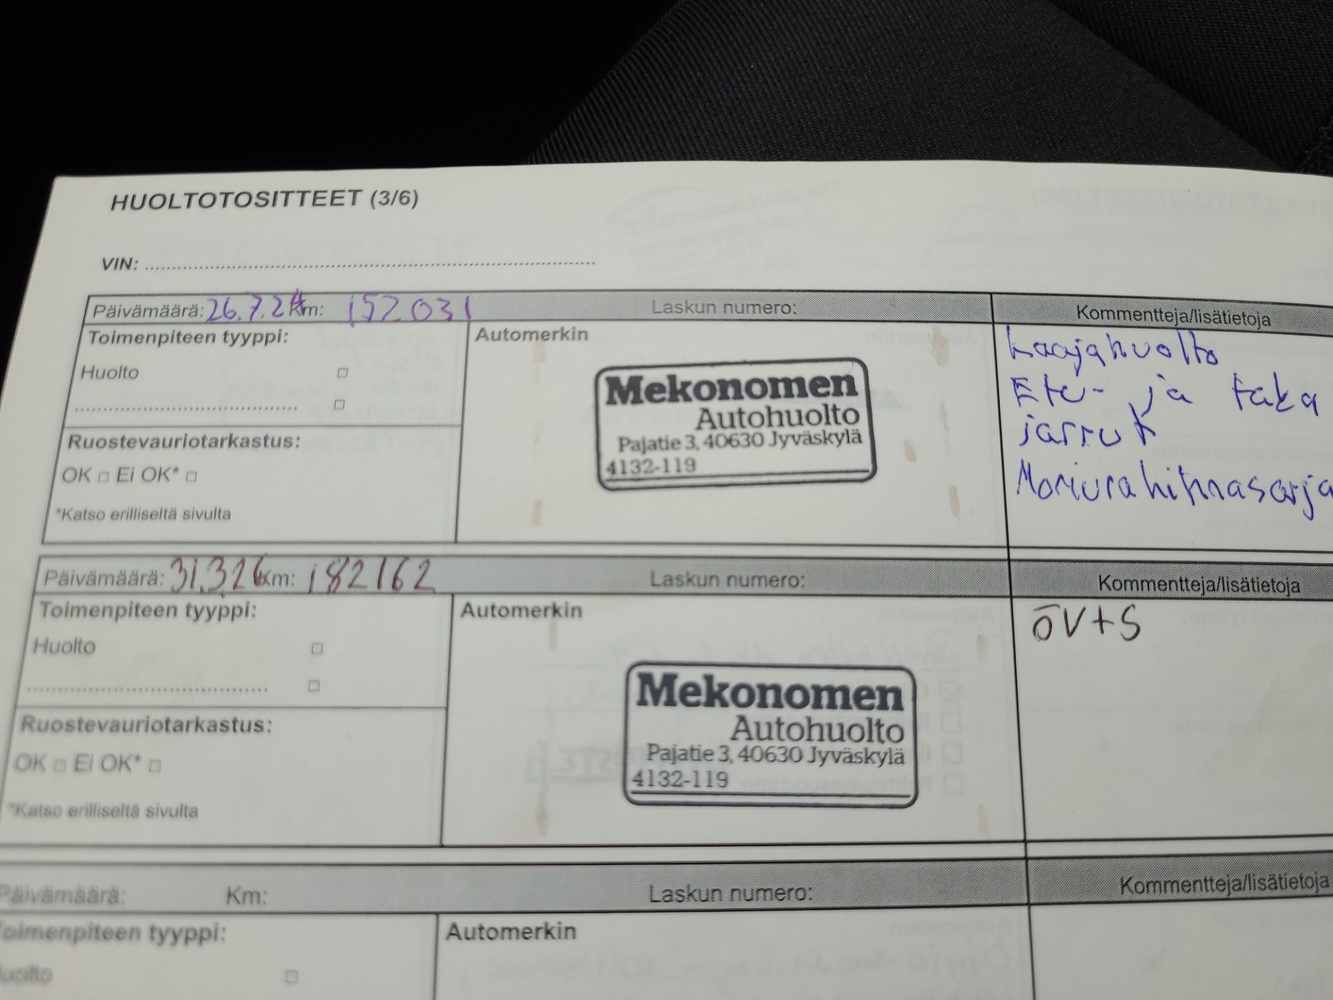 HUOLTOTOSITTEET (3/6)
VIN:
Päivämäärä: 26.7.24 Km: 152031 Laskun numero: Kommentteja/lisätietoja
Toimenpiteen tyyppi:
Huolto
Ruostevauriotarkastus:
OK □ Ei OK* □
*Katso erilliseltä sivulta
Automerkin
Mekonomen
Autohuolto
Pajatie 3, 40630 Jyväskylä
4132-119
Laajahuolto
Etu- ja taka
jarrut
Moniurahihnasarja
Päivämäärä: 31.3.26 Km: 182162 Laskun numero: Kommentteja/lisätietoja
Toimenpiteen tyyppi:
Huolto
Ruostevauriotarkastus:
OK □ Ei OK* □
*Katso erilliseltä sivulta
Automerkin
Mekonomen
Autohuolto
Pajatie 3, 40630 Jyväskylä
4132-119
ÖV+S
Päivämäärä: Km: Laskun numero: Kommentteja/lisätietoja
Toimenpiteen tyyppi:
Huolto
Automerkin